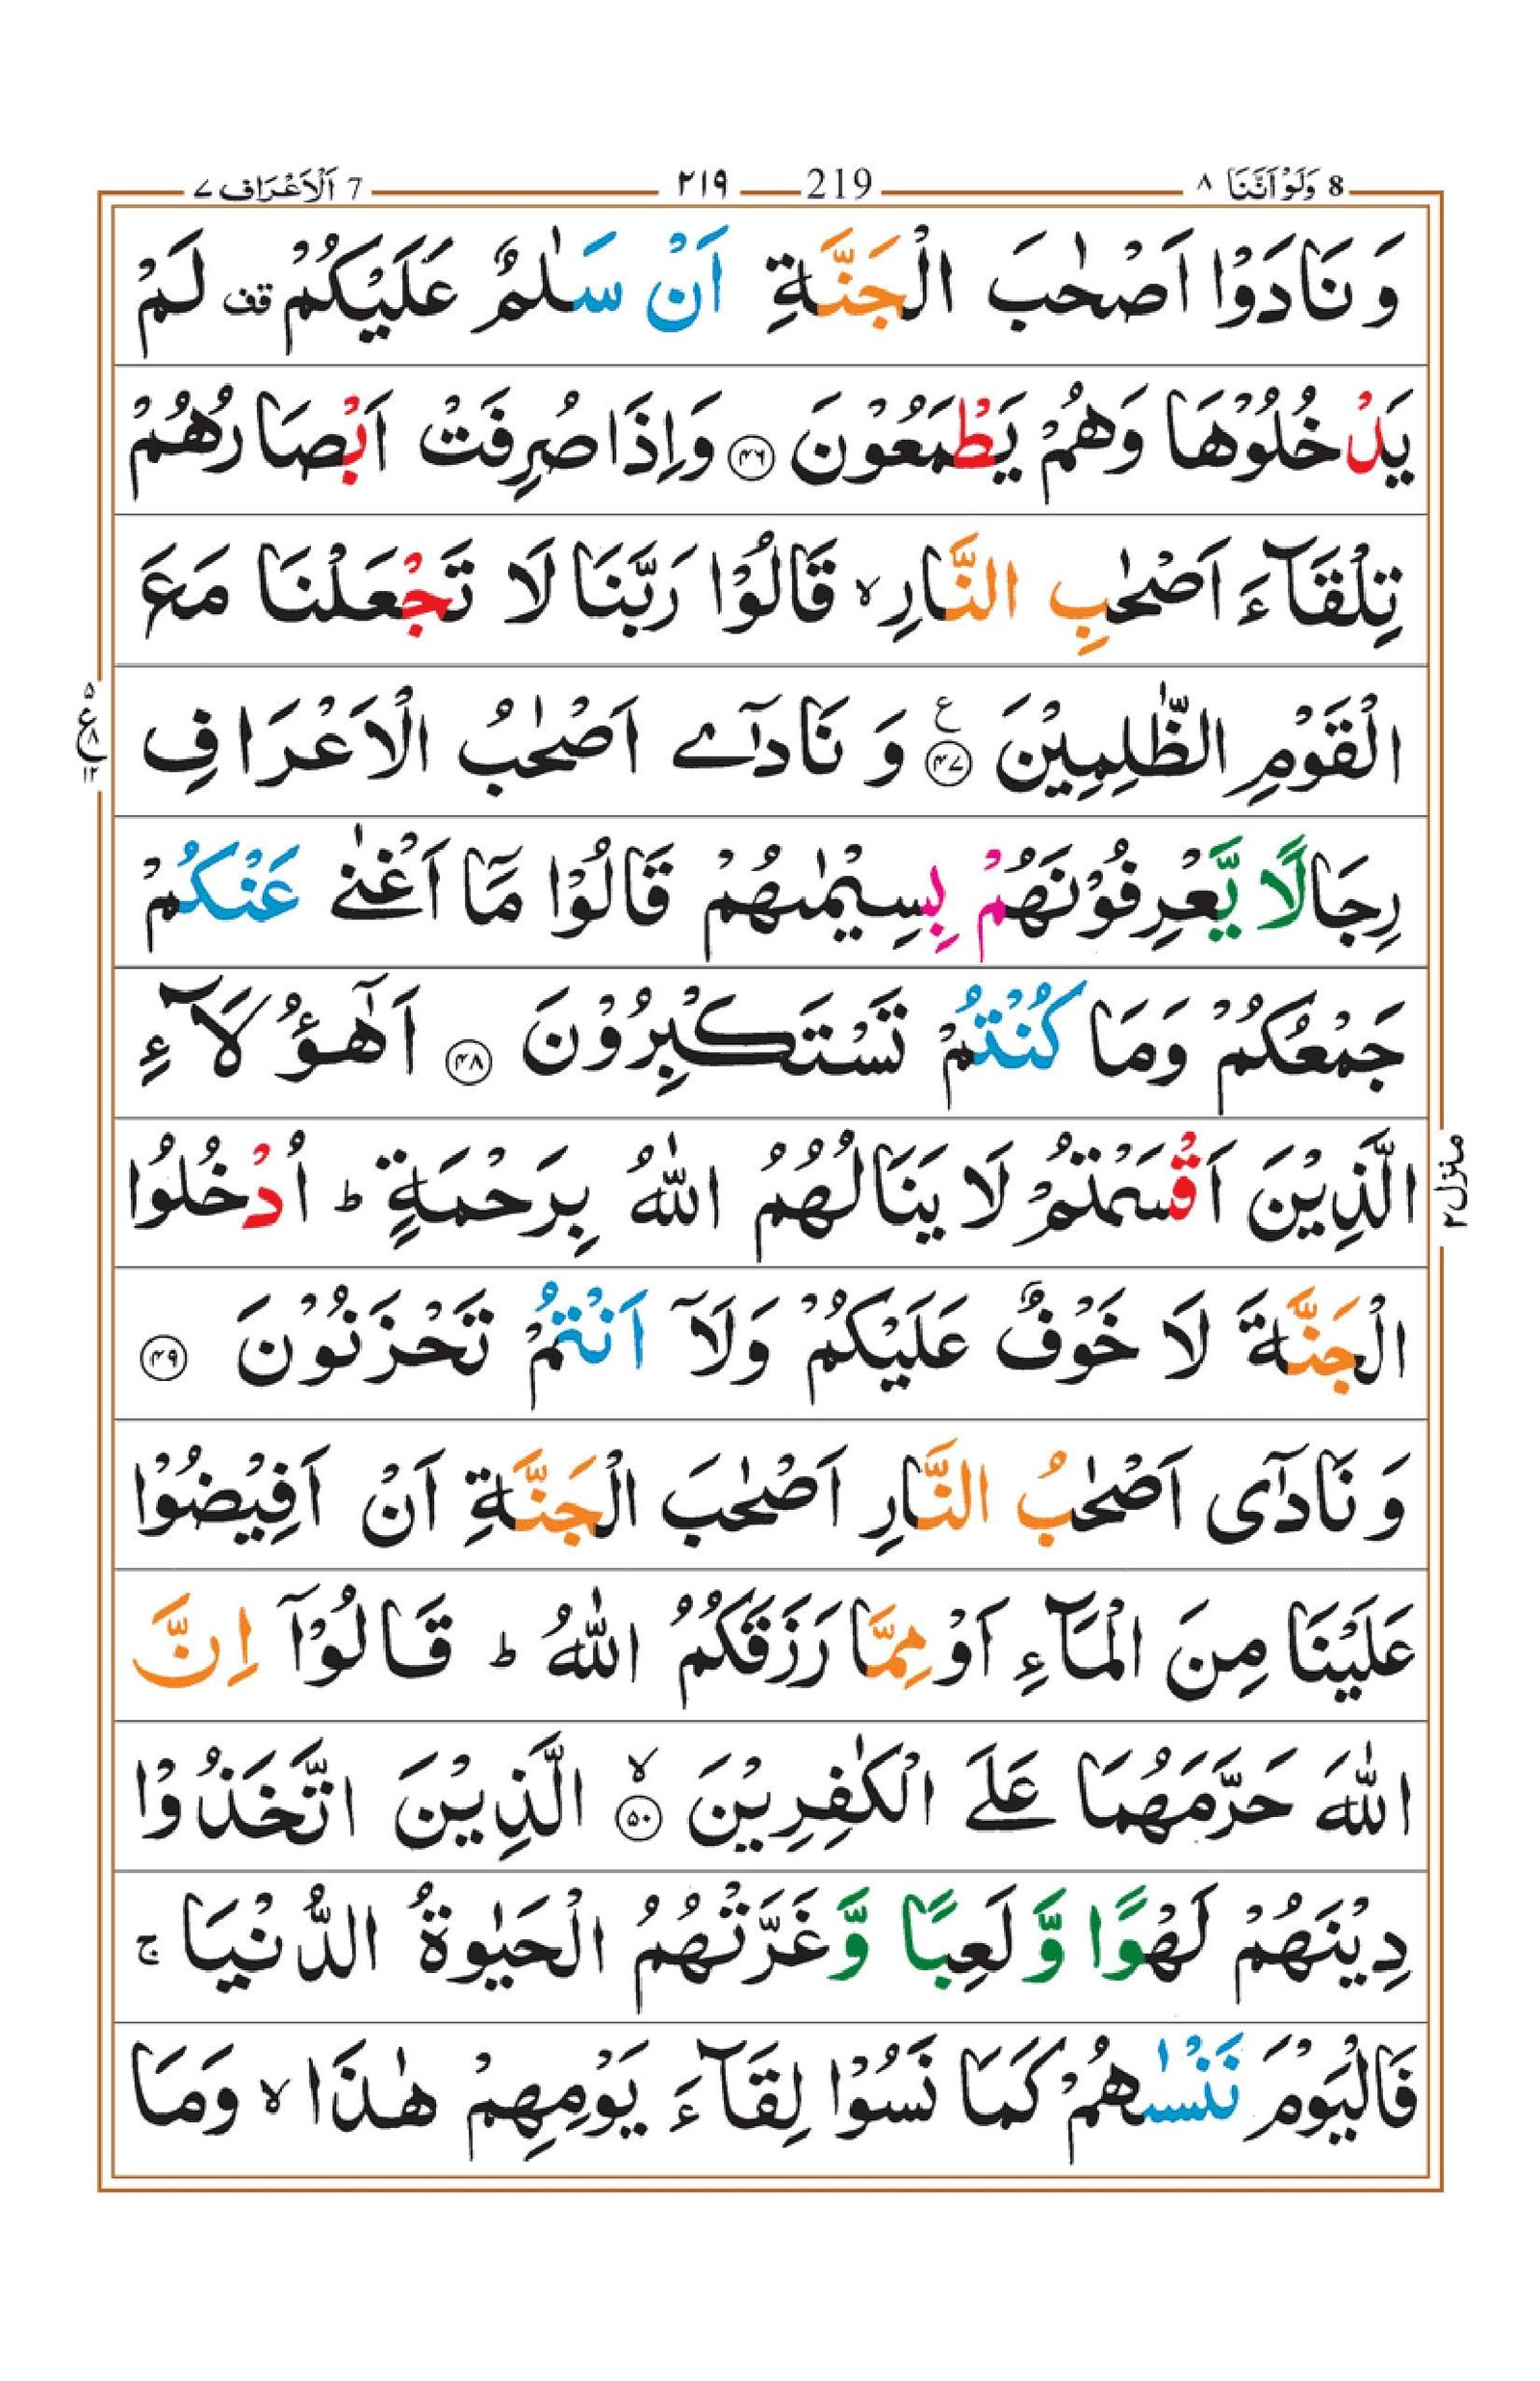 8 وَلَوْ اَنَّنَا ٨ 219 ٢١٩ 7 اَلْاَعْرَاف ٧
وَ نَادَوْا اَصْحٰبَ الْجَنَّةِ اَنْ سَلٰمٌ عَلَيْكُمْ قف لَمْ
يَدْخُلُوْهَا وَهُمْ يَطْمَعُوْنَ ﴿٤٦﴾ وَاِذَا صُرِفَتْ اَبْصَارُهُمْ
تِلْقَآءَ اَصْحٰبِ النَّارِ ۙ قَالُوْا رَبَّنَا لَا تَجْعَلْنَا مَعَ
الْقَوْمِ الظّٰلِمِيْنَ ﴿٤٧﴾ ع وَ نَادٰٓے اَصْحٰبُ الْاَعْرَافِ
٥ ع ٨ ١٢
رِجَالًا يَّعْرِفُوْنَهُمْ بِسِيْمٰىهُمْ قَالُوْا مَآ اَغْنٰے عَنْكُمْ
جَمْعُكُمْ وَمَا كُنْتُمْ تَسْتَكْبِرُوْنَ ﴿٤٨﴾ اَهٰٓؤُلَآءِ
الَّذِيْنَ اَقْسَمْتُمْ لَا يَنَالُهُمُ اللّٰهُ بِرَحْمَةٍ ؕ اُدْخُلُوا
منزل ٢
الْجَنَّةَ لَا خَوْفٌ عَلَيْكُمْ وَلَآ اَنْتُمْ تَحْزَنُوْنَ ﴿٤٩﴾
وَ نَادٰٓى اَصْحٰبُ النَّارِ اَصْحٰبَ الْجَنَّةِ اَنْ اَفِيْضُوْا
عَلَيْنَا مِنَ الْمَآءِ اَوْ مِمَّا رَزَقَكُمُ اللّٰهُ ؕ قَالُوْٓا اِنَّ
اللّٰهَ حَرَّمَهُمَا عَلَے الْكٰفِرِيْنَ ﴿٥٠﴾ ۙ الَّذِيْنَ اتَّخَذُوْا
دِيْنَهُمْ لَهْوًا وَّ لَعِبًا وَّ غَرَّتْهُمُ الْحَيٰوةُ الدُّنْيَا ۚ
فَالْيَوْمَ نَنْسٰىهُمْ كَمَا نَسُوْا لِقَآءَ يَوْمِهِمْ هٰذَا ۙ وَمَا